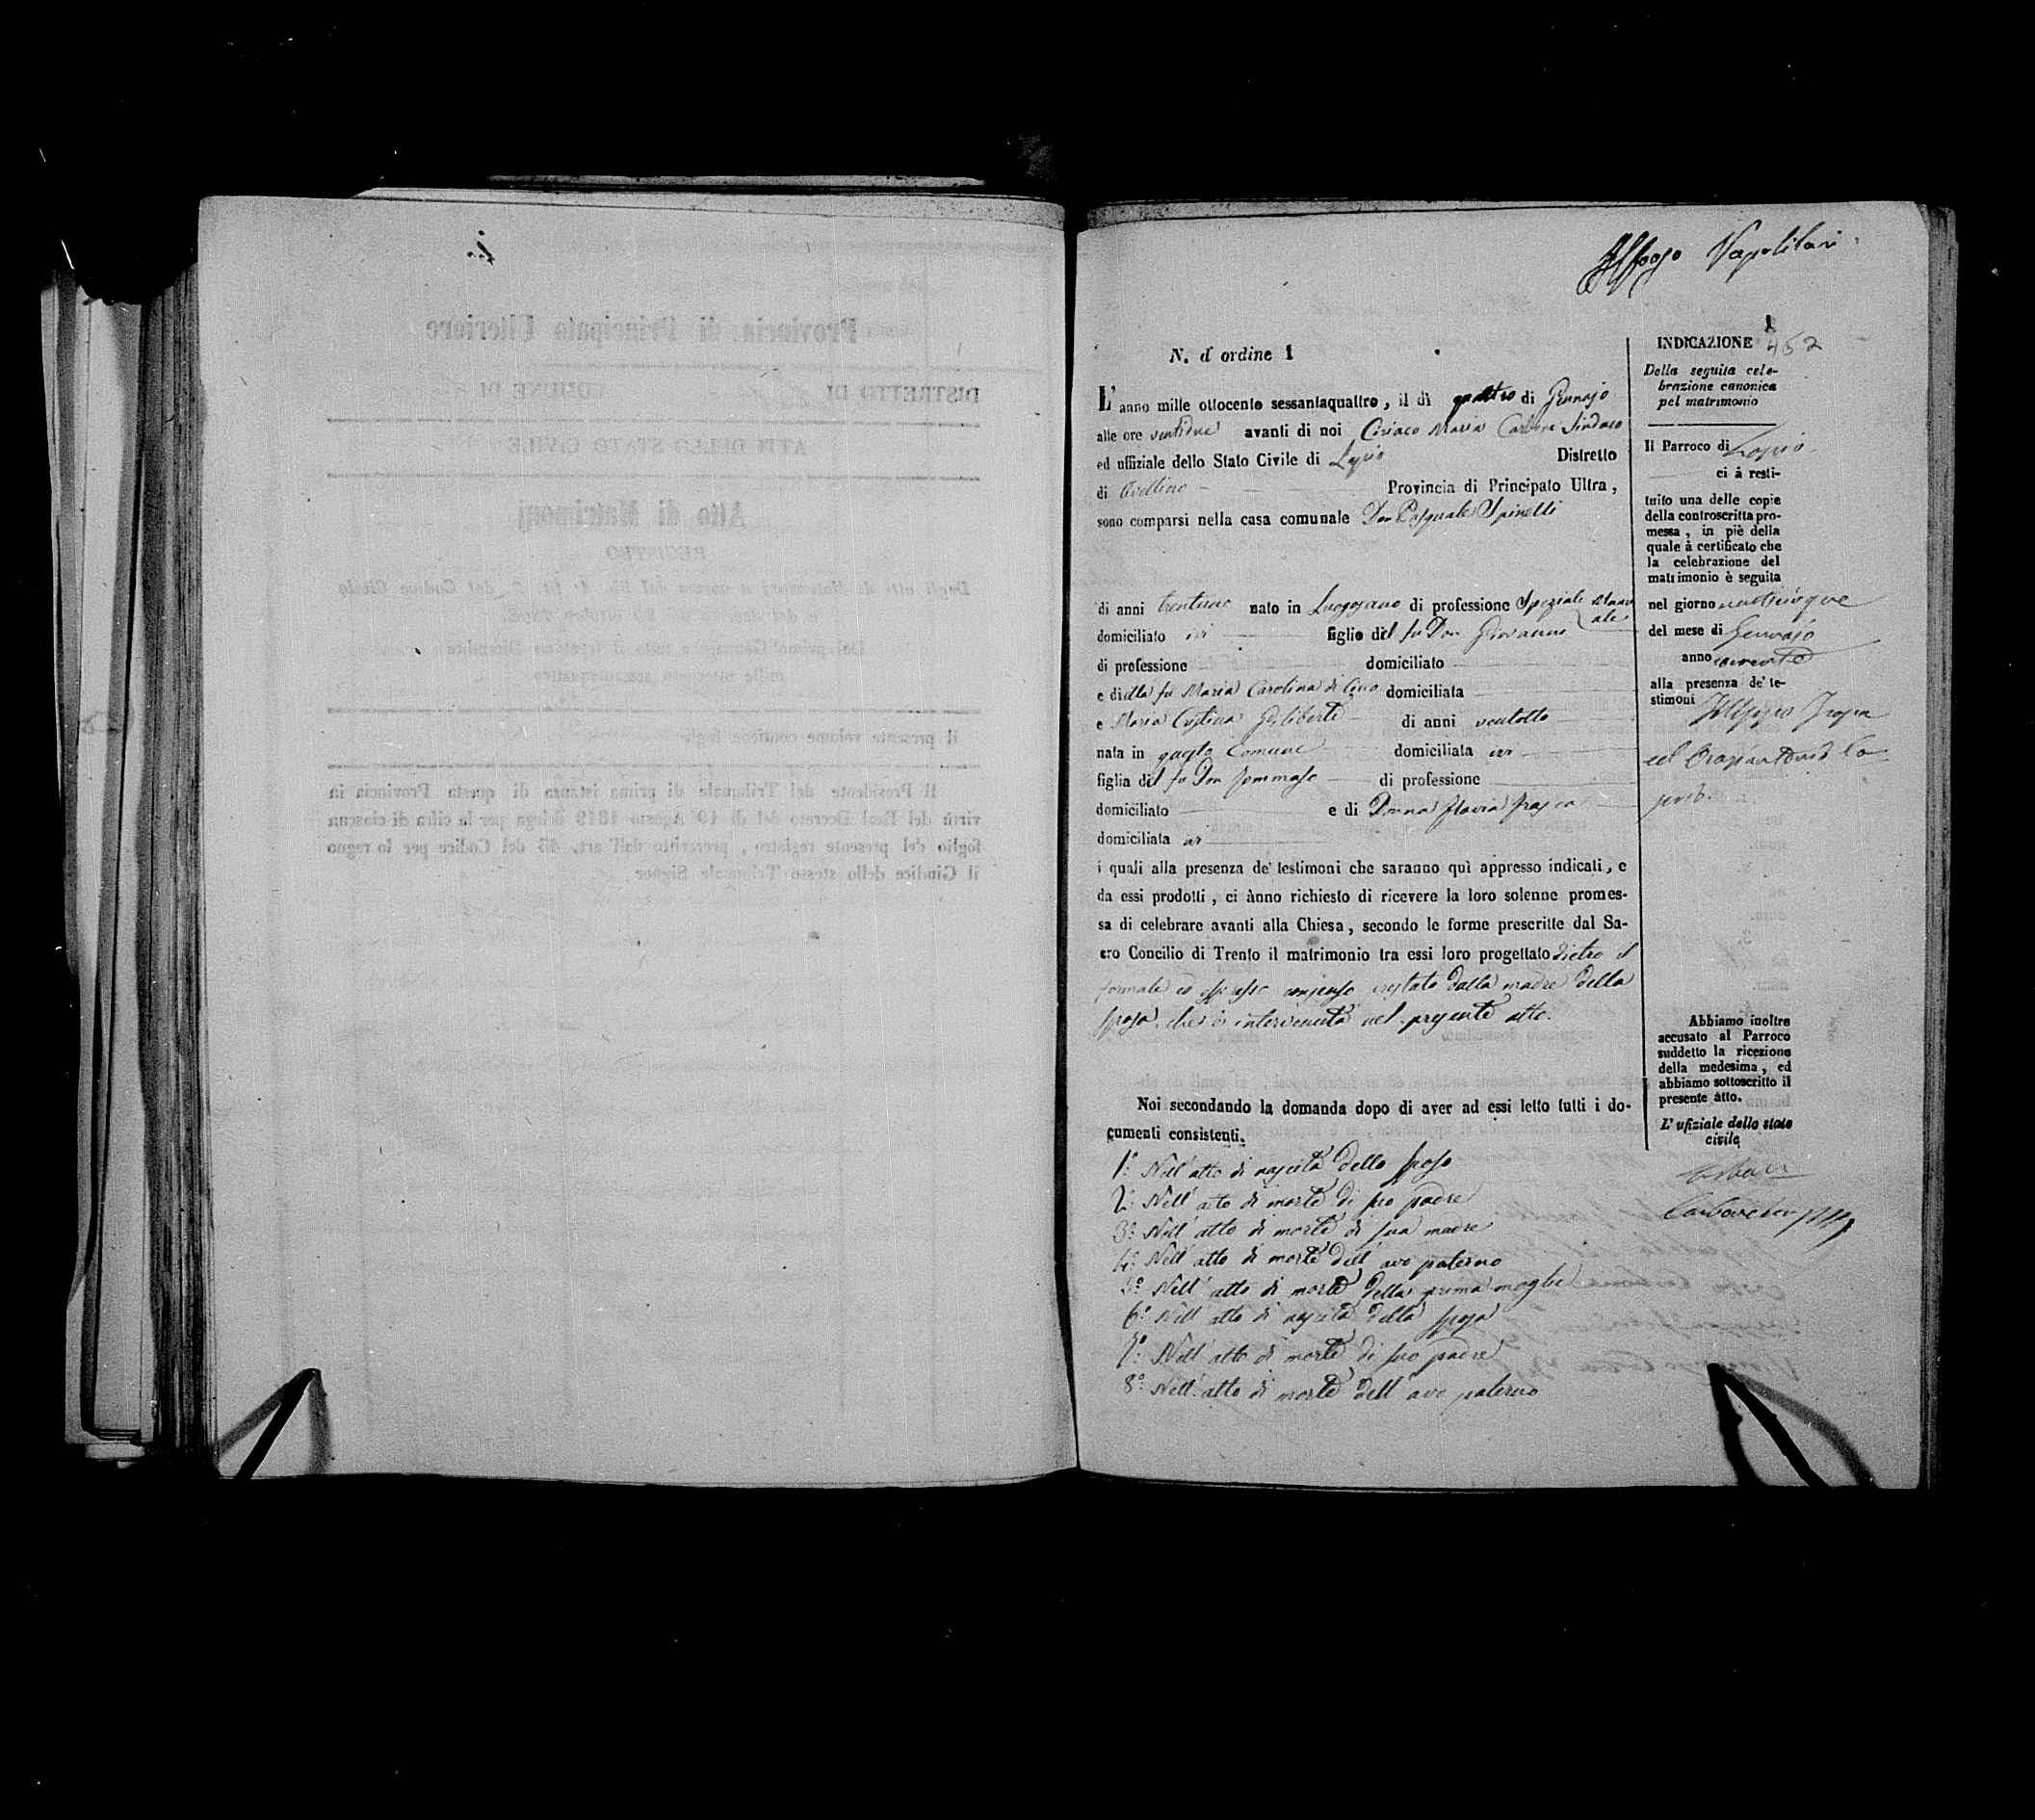 Alfonso Napolitani
N. d'ordine 1
L'anno mille ottocento sessantaquattro, il dì quattro di Gennajo
alle ore ventidue avanti di noi Ciriaco Maria Carbone Sindaco
ed uffiziale dello Stato Civile di Lapio Distretto
di Avellino Provincia di Principato Ultra,
sono comparsi nella casa comunale Don Pasquale Spinelli
di anni trentuno nato in Luogosano di professione Speziale Manu
ale
domiciliato ivi figlio del fu Don Giovanni
di professione domiciliato
e della fu Maria Carolina di domiciliata
e Maria Cristina Gioliberti di anni ventotto
nata in questo Comune domiciliata ivi
figlia del fu Don Tommaso di professione
domiciliato e di Donna Flavia
domiciliata ivi
i quali alla presenza de' testimoni che saranno quì appresso indicati, e
da essi prodotti, ci ànno richiesto di ricevere la loro solenne promes-
sa di celebrare avanti alla Chiesa, secondo le forme prescritte dal Sa-
cro Concilio di Trento il matrimonio tra essi loro progettato dietro il
formale ed espresso consenso prestato dalla madre della
sposa che è intervenuta nel presente atto.
Noi secondando la domanda dopo di aver ad essi letto tutti i do-
cumenti consistenti.
1° Nell'atto di nascita dello sposo
2° Nell'atto di morte di suo padre
3° Nell'atto di morte di sua madre
4° Nell'atto di morte dell'avo paterno
5° Nell'atto di morte della prima moglie
6° Nell'atto di nascita della sposa
7° Nell'atto di morte di suo padre
8° Nell'atto di morte dell'avo paterno
1
INDICAZIONE 452
Della seguita cele-
brazione canonica
pel matrimonio
Il Parroco di Lapio
ci à resti-
tuito una delle copie
della controscritta pro-
messa, in piè della
quale à certificato che
la celebrazione del
matrimonio è seguita
nel giorno venticinque
del mese di Gennajo
anno corrente
alla presenza de' te-
stimoni Filippo
ed
Abbiamo inoltre
accusato al Parroco
suddetto la ricezione
della medesima, ed
abbiamo sottoscritto il
presente atto.
L'ufiziale dello stato
civile
Provincia di Principato Ulteriore
DISTRETTO DI COMUNE DI
ATTI DELLO STATO CIVILE
Atto di Matrimonj
REGISTRO
Il presente volume contiene fogli
Il Presidente del Tribunale di prima istanza di questa Provincia in
virtù del Real Decreto del dì 10 Agosto 1819 delega per la cifra di ciascun
foglio del presente registro, prescritto dall'art. 45 del Codice per lo regno
il Giudice dello stesso Tribunale Signor